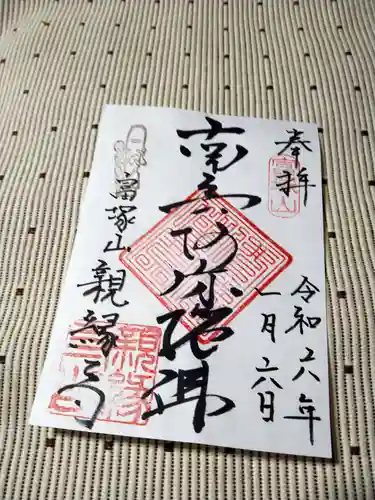 奉拝
令和六八年
一月六日
南無阿弥陀佛
高塚山
親縁寺